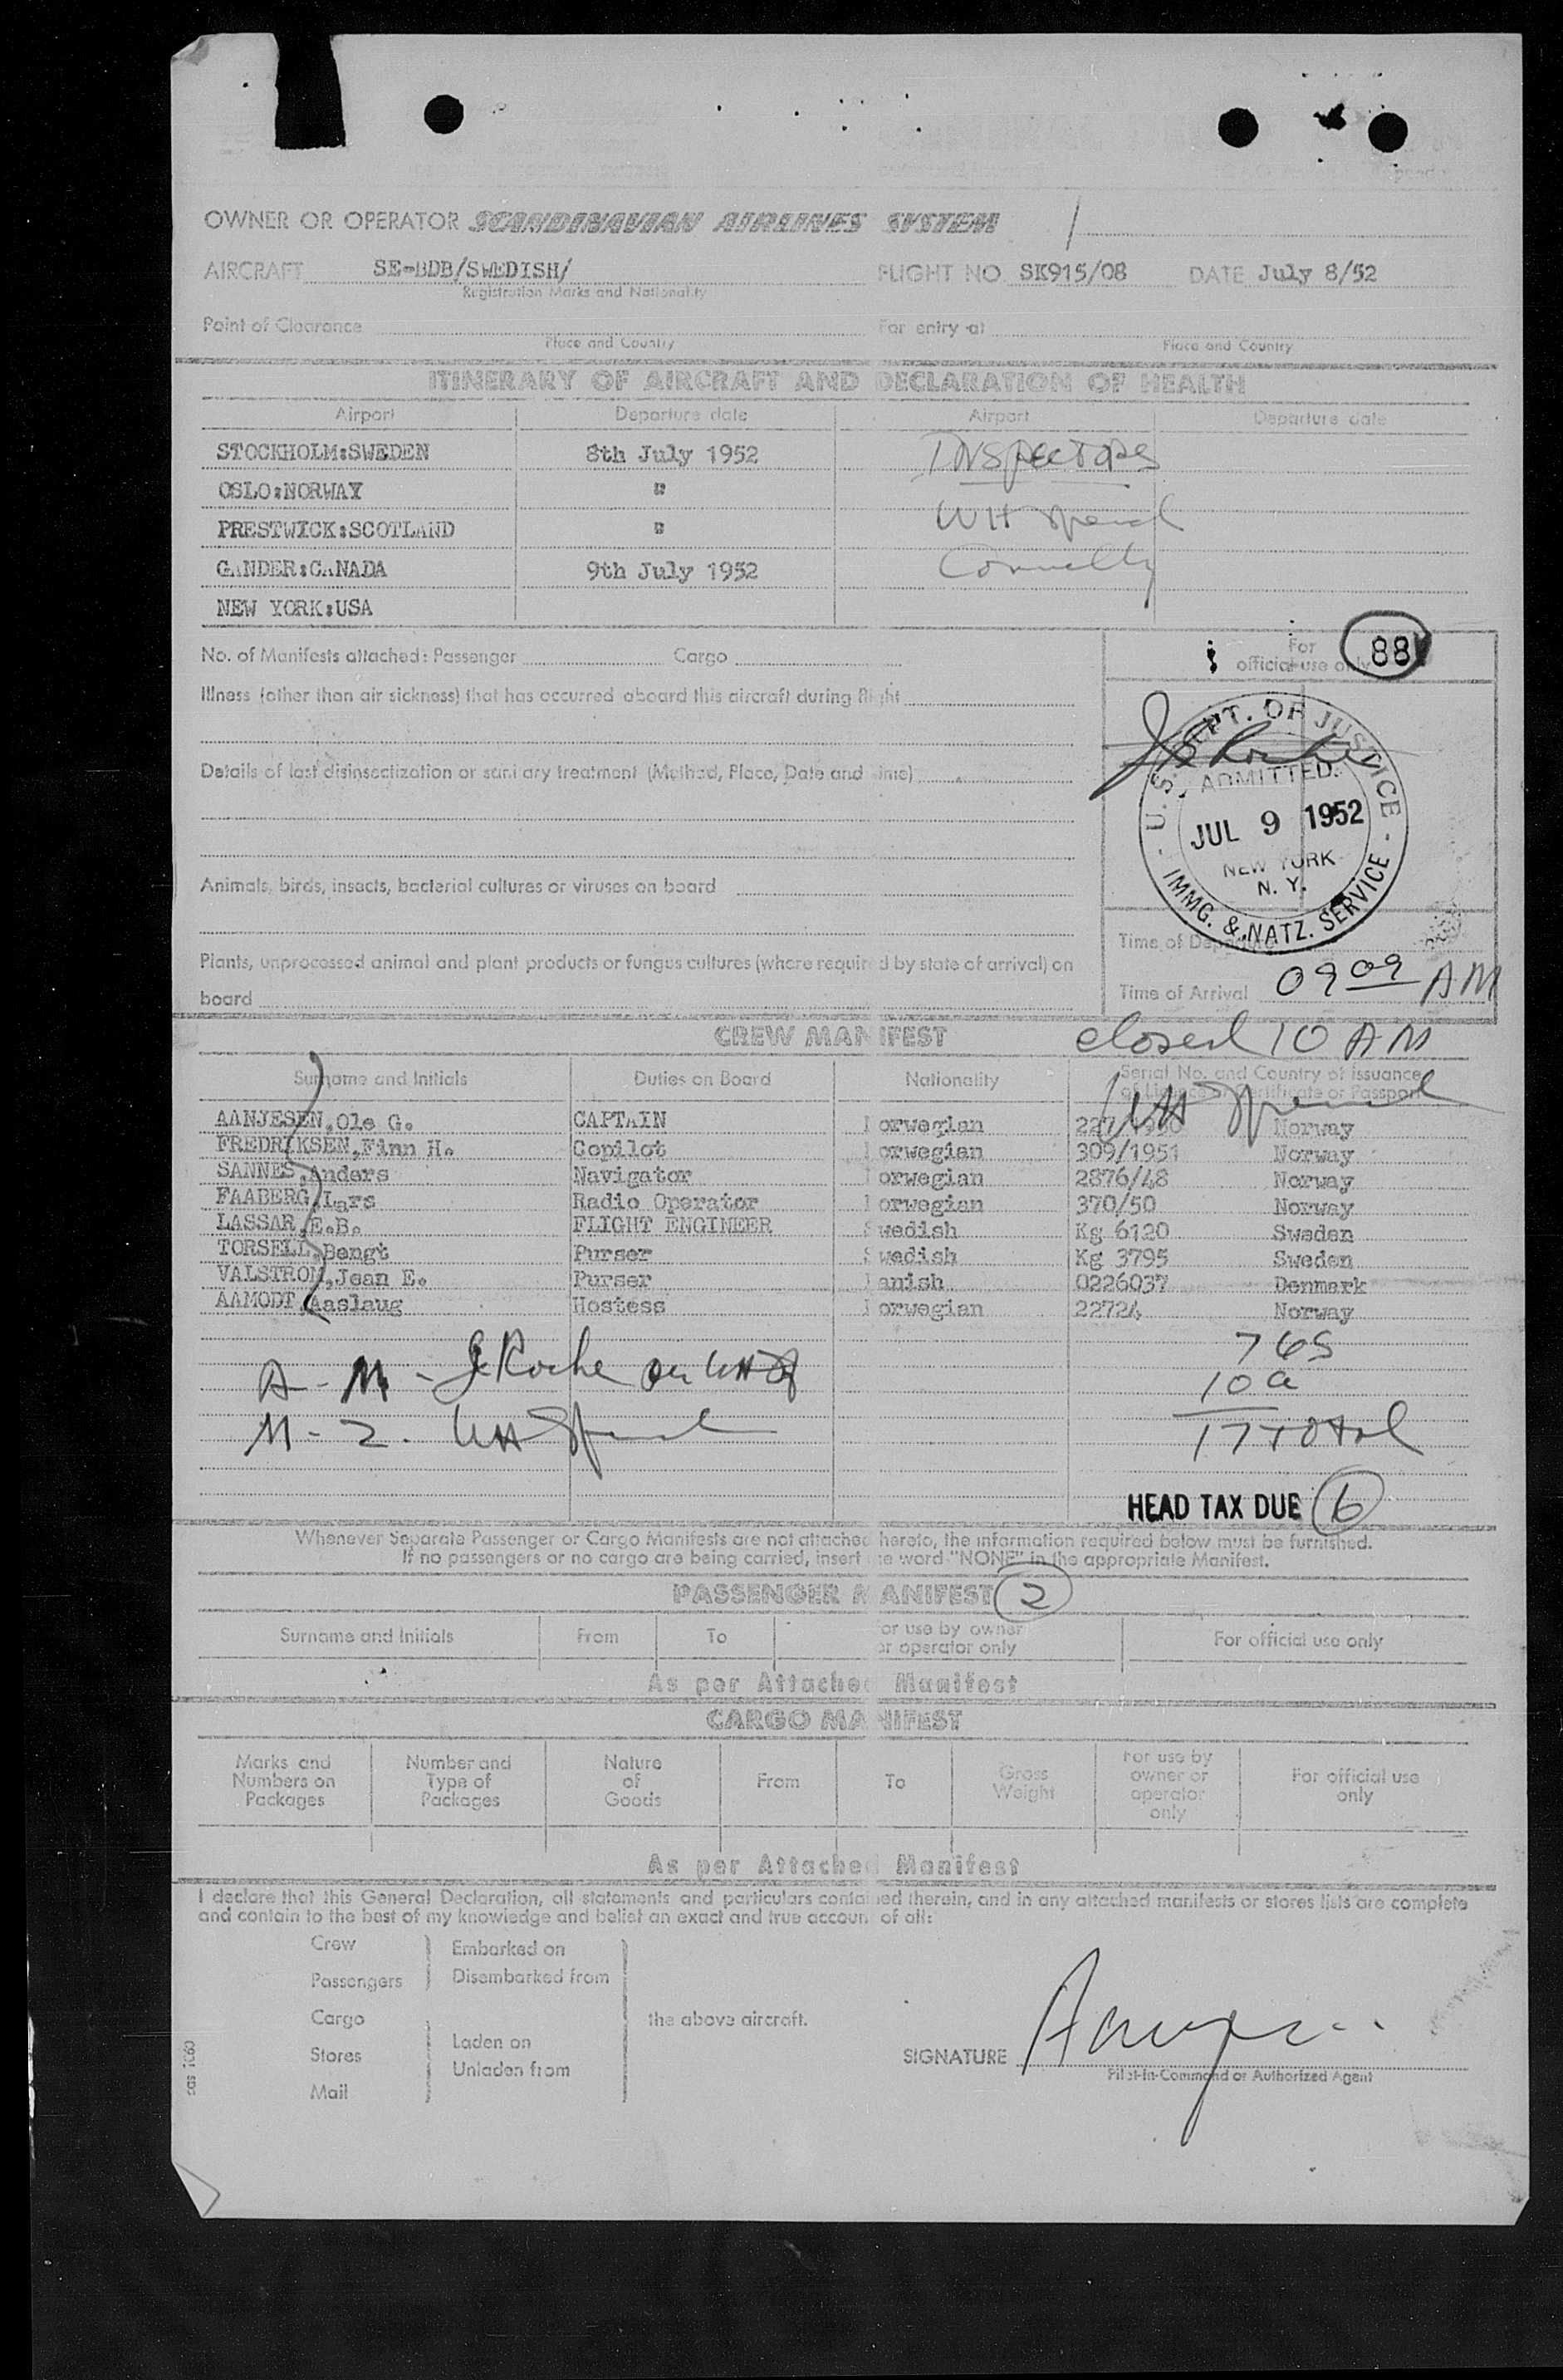 OWNER OR OPERATOR SCANDINAVIAN AIRLINES SYSTEM
AIRCRAFT SE-BDB/SWEDISH/ FLIGHT NO SK915/08 DATE July 8/52
Registration Marks and Nationality
Point of Clearance For entry at
Place and Country Place and Country
ITINERARY OF AIRCRAFT AND DECLARATION OF HEALTH
Airport Departure date Airport Departure date
STOCKHOLM:SWEDEN 8th July 1952 Inspectors
OSLO:NORWAY "
PRESTWICK:SCOTLAND " WH
GANDER:CANADA 9th July 1952 Connelly
NEW YORK:USA
No. of Manifests attached: Passenger Cargo
For official use only 88
Illness (other than air sickness) that has occurred aboard this aircraft during flight
Details of last disinsectization or sanitary treatment (Method, Place, Date and Time)
U.S. DEPT. OF JUSTICE
ADMITTED
JUL 9 1952
NEW YORK
N. Y.
IMMG. & NATZ. SERVICE
Animals, birds, insects, bacterial cultures or viruses on board
Time of Departure
Plants, unprocessed animal and plant products or fungus cultures (where required by state of arrival) on
board
Time of Arrival 0909 AM
CREW MANIFEST closed 10 AM
Surname and Initials Duties on Board Nationality Serial No. and Country of issuance
of Licence or Certificate or Passport
AANJESEN,Ole G. CAPTAIN Norwegian Norway
FREDRIKSEN,Finn H. Copilot Norwegian 309/1951 Norway
SANNES,Anders Navigator Norwegian 2876/48 Norway
FAABERG,Lars Radio Operator Norwegian 370/50 Norway
LASSAR,E.B. FLIGHT ENGINEER Swedish Kg 6120 Sweden
TORSELL,Bengt Purser Swedish Kg 3795 Sweden
VALSTROM,Jean E. Purser Danish 0226037 Denmark
AAMODT,Aaslaug Hostess Norwegian 22724 Norway
A - M - J Roche
10 a
M - 2.
17 total
HEAD TAX DUE 6
Whenever Separate Passenger or Cargo Manifests are not attached hereto, the information required below must be furnished.
If no passengers or no cargo are being carried, insert the word "NONE" in the appropriate Manifest.
PASSENGER MANIFEST 2
Surname and Initials From To For use by owner or operator only For official use only
As per Attached Manifest
CARGO MANIFEST
Marks and Numbers on Packages Number and Type of Packages Nature of Goods From To Gross Weight For use by owner or operator only For official use only
As per Attached Manifest
I declare that this General Declaration, all statements and particulars contained therein, and in any attached manifests or stores lists are complete
and contain to the best of my knowledge and belief an exact and true account of all:
Crew Embarked on
Passengers Disembarked from
Cargo the above aircraft.
Laden on
Stores SIGNATURE
Unladen from
Pilot-in-Command or Authorized Agent
Mail
sas 1060